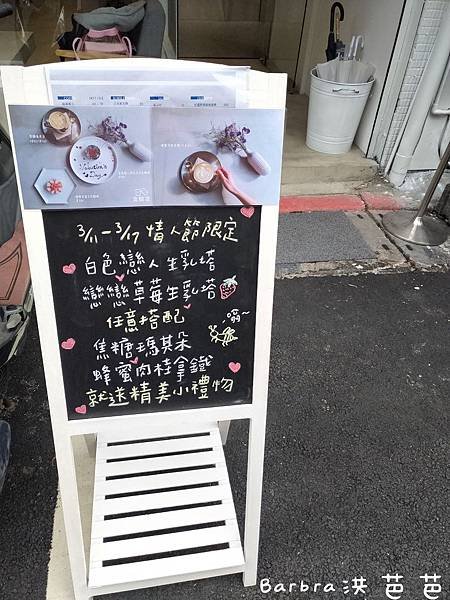 Valentine's
Day
3/11-3/17 情人節限定
白色戀人生乳塔
戀戀草莓生乳塔
任意搭配
嗡~
焦糖瑪其朵
蜂蜜肉桂拿鐵
就送精美小禮物
Barbra洪 芭 芭